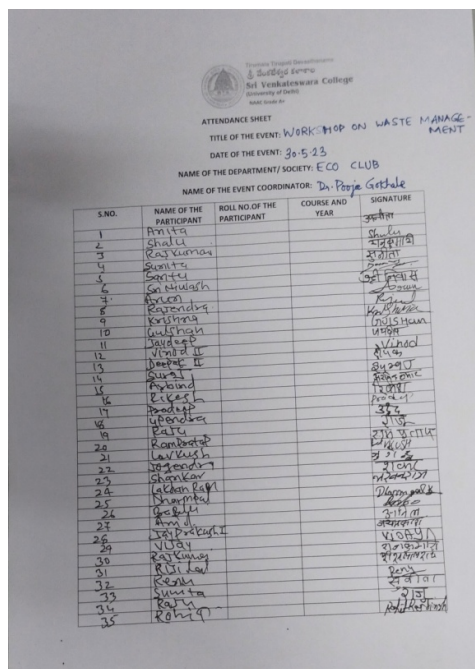 Tirumala Tirupati Devasthanams
శ్రీ వేంకటేశ్వర కళాశాల
Sri Venkateswara College
(University of Delhi)
NAAC Grade A+
ATTENDANCE SHEET
TITLE OF THE EVENT: WORKSHOP ON WASTE MANAGE-
MENT
DATE OF THE EVENT: 30.5.23
NAME OF THE DEPARTMENT/ SOCIETY: ECO CLUB
NAME OF THE EVENT COORDINATOR: Dr. Pooja Gokhale
S.NO. NAME OF THE PARTICIPANT ROLL NO.OF THE PARTICIPANT COURSE AND YEAR SIGNATURE
1 Anita अनीता
2 Shalu Shalu
3 Rajkumar
4 Sunita सुनीता
5 Santu
6 Sri Niwash श्री निवास
7. Arun Arun
8 Rajendra
9 Krishna
10 Gulshan GULSHAN
11 Jaydeep जयदीप
12 Vinod II Vinod
13 Deepak II दीपक
14 Suraj सुरज
15 Arbind
16 Rikesh रिकेश
17 Pradeep Pradeep
18 Upendra
19 Raju राजू
20 Rampratap राम प्रताप
21 Lavkush
22 Jogendra
23 Shankar शंकर
24 Lakhan Ram
25 Dharmpal Dharmpal
26
27 Anil अनिल
28 Jay Prakash II जयप्रकाश
29 Vijay VIJAY
30 Rajkumar राजकुमार
31
32 Renu Renu
33 Sunita सुनीता
34 Raju राजु
35 Rohit